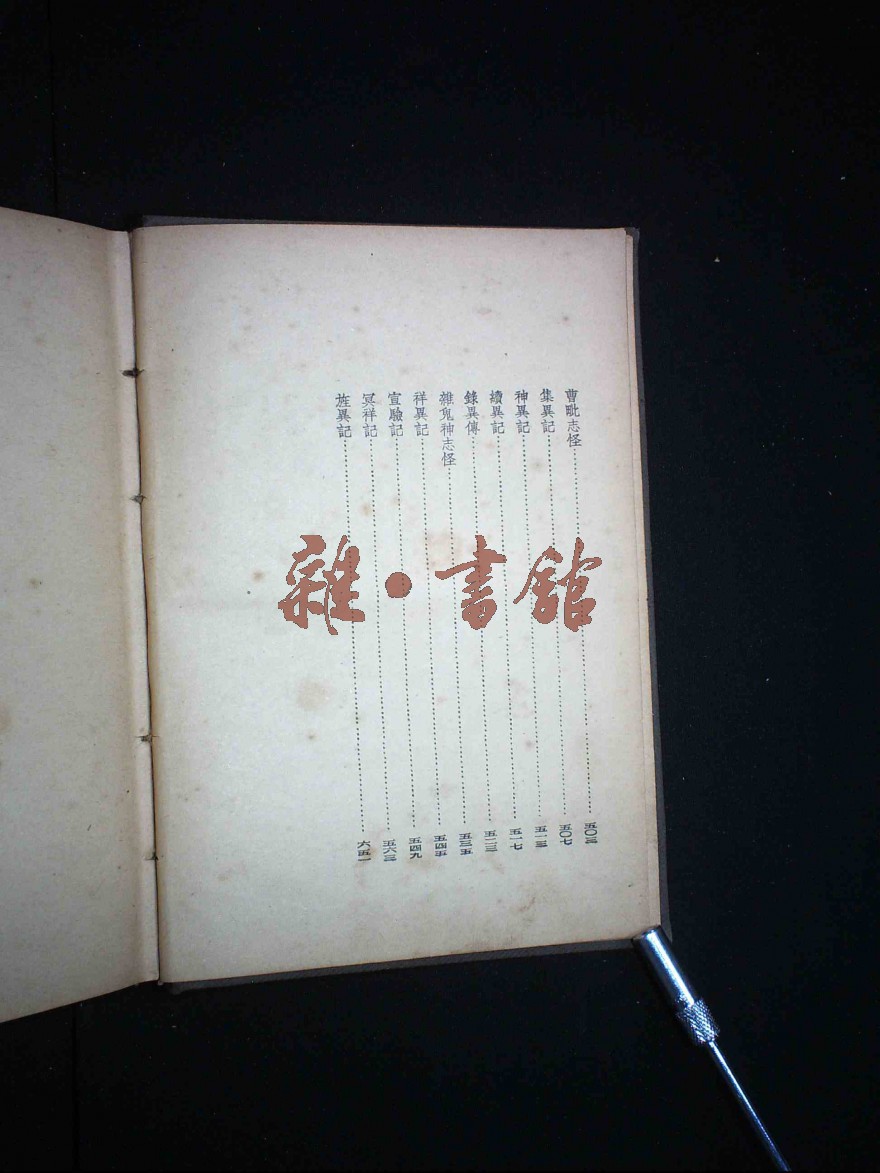 曹毗志怪……五〇三
集異記……五〇七
神異記……五一三
續異記……五一七
錄異傳……五二三
雜鬼神志怪……五三五
祥異記……五四五
宣驗記……五四九
冥祥記……五六三
旌異記……六五一
雜•書館